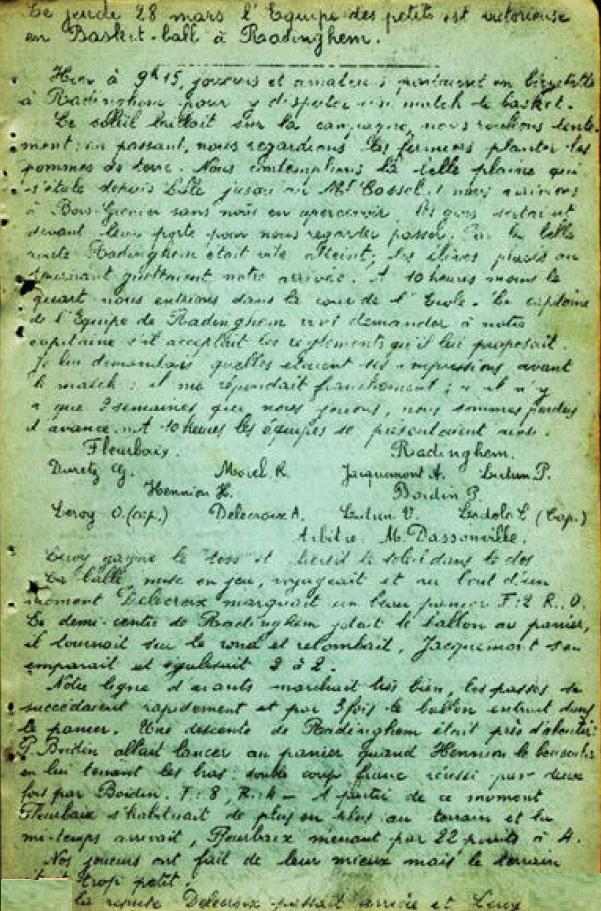 Ce jeudi 28 mars l'Equipe des petits est victorieuse
en Basket-ball à Radinghem.
Hier à 9h15, joueurs et amateurs partaient en bicyclette
à Radinghem pour y disputer un match de basket.
Le soleil brillait sur la campagne, nous roulions lente-
ment; en passant, nous regardions les fermiers planter les
pommes de terre. Nous contemplions la belle plaine qui
s'étale depuis jusqu'au Mt Cassel et nous arrivions
à Bois-Grenier sans nous en apercevoir. Les gens sortaient
devant leur porte pour nous regarder passer. Par la belle
route Radinghem était vite atteint; les élèves placés au
tournant guettaient notre arrivée. A 10 heures moins le
quart nous entrions dans la cour de l'Ecole. Le capitaine
de l'Equipe de Radinghem vint demander à notre
capitaine s'il acceptait les règlements qu'il lui proposait.
Je lui demandais quelles étaient ses impressions avant
le match : il me répondait franchement : " il n'y
a que 3 semaines que nous jouons, nous sommes perdus
d'avance. A 10 heures les équipes se présentaient ainsi.
Fleurbaix. Radinghem.
Duretz G. Morel R. Jacquemont A. Lutun P.
Hennion H. Boidin P.
Leroy O. (cap.) Delecroix A. Lutun V. (Cap.)
Arbitre M. Dassonville.
Leroy gagne le "toss" et le soleil dans le dos
La balle, mise en jeu, voyageait et au bout d'un
moment Delecroix marquait un beau panier F: 2 R: 0.
Le demi-centre de Radinghem jetait le ballon au panier,
il tournait sur le rond et retombait, Jacquemont s'en
emparait et égalisait 2 à 2.
Notre ligne d'avants marchait très bien, les passes se
succédaient rapidement et par 3 fois le ballon entrait dans
le panier. Une descente de Radinghem était près d'aboutir:
P. Boidin allait lancer au panier quand Hennion le bouscula
en lui tenant les bras: double coup franc réussi par deux
fois par Boidin. F: 8, R: 4 - A partir de ce moment
Fleurbaix s'habituait de plus en plus au terrain et la
mi-temps arrivait, Fleurbaix menant par 22 points à 4.
Nos joueurs ont fait de leur mieux mais le terrain
était trop petit.
la reprise Delecroix passait arrière et Leroy